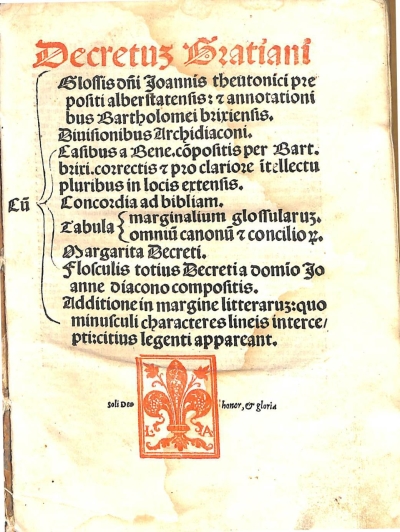 Decretuʒ Gratiani
Glossis dn̄i Joannis theutonici pre
positi alberstatensis: ⁊ annotationi
bus Bartholomei brixiensis.
Diuisionibus Archidiaconi.
Casibus a Bene. cōpositis per Bart.
brixi. correctis ⁊ pro clariore ītellectu
pluribus in locis extensis.
Cū
Concordia ad bibliam.
Tabula
marginalium glossularuʒ.
omniū canonū ⁊ concilioꝝ.
Margarita Decreti.
Flosculis totius Decreti a domīo Jo
anne diacono compositis.
Additione in margine litteraruʒ: quo
minusculi characteres lineis interce/
pti: citius legenti appareant.
soli Deo honor, & gloria
L A